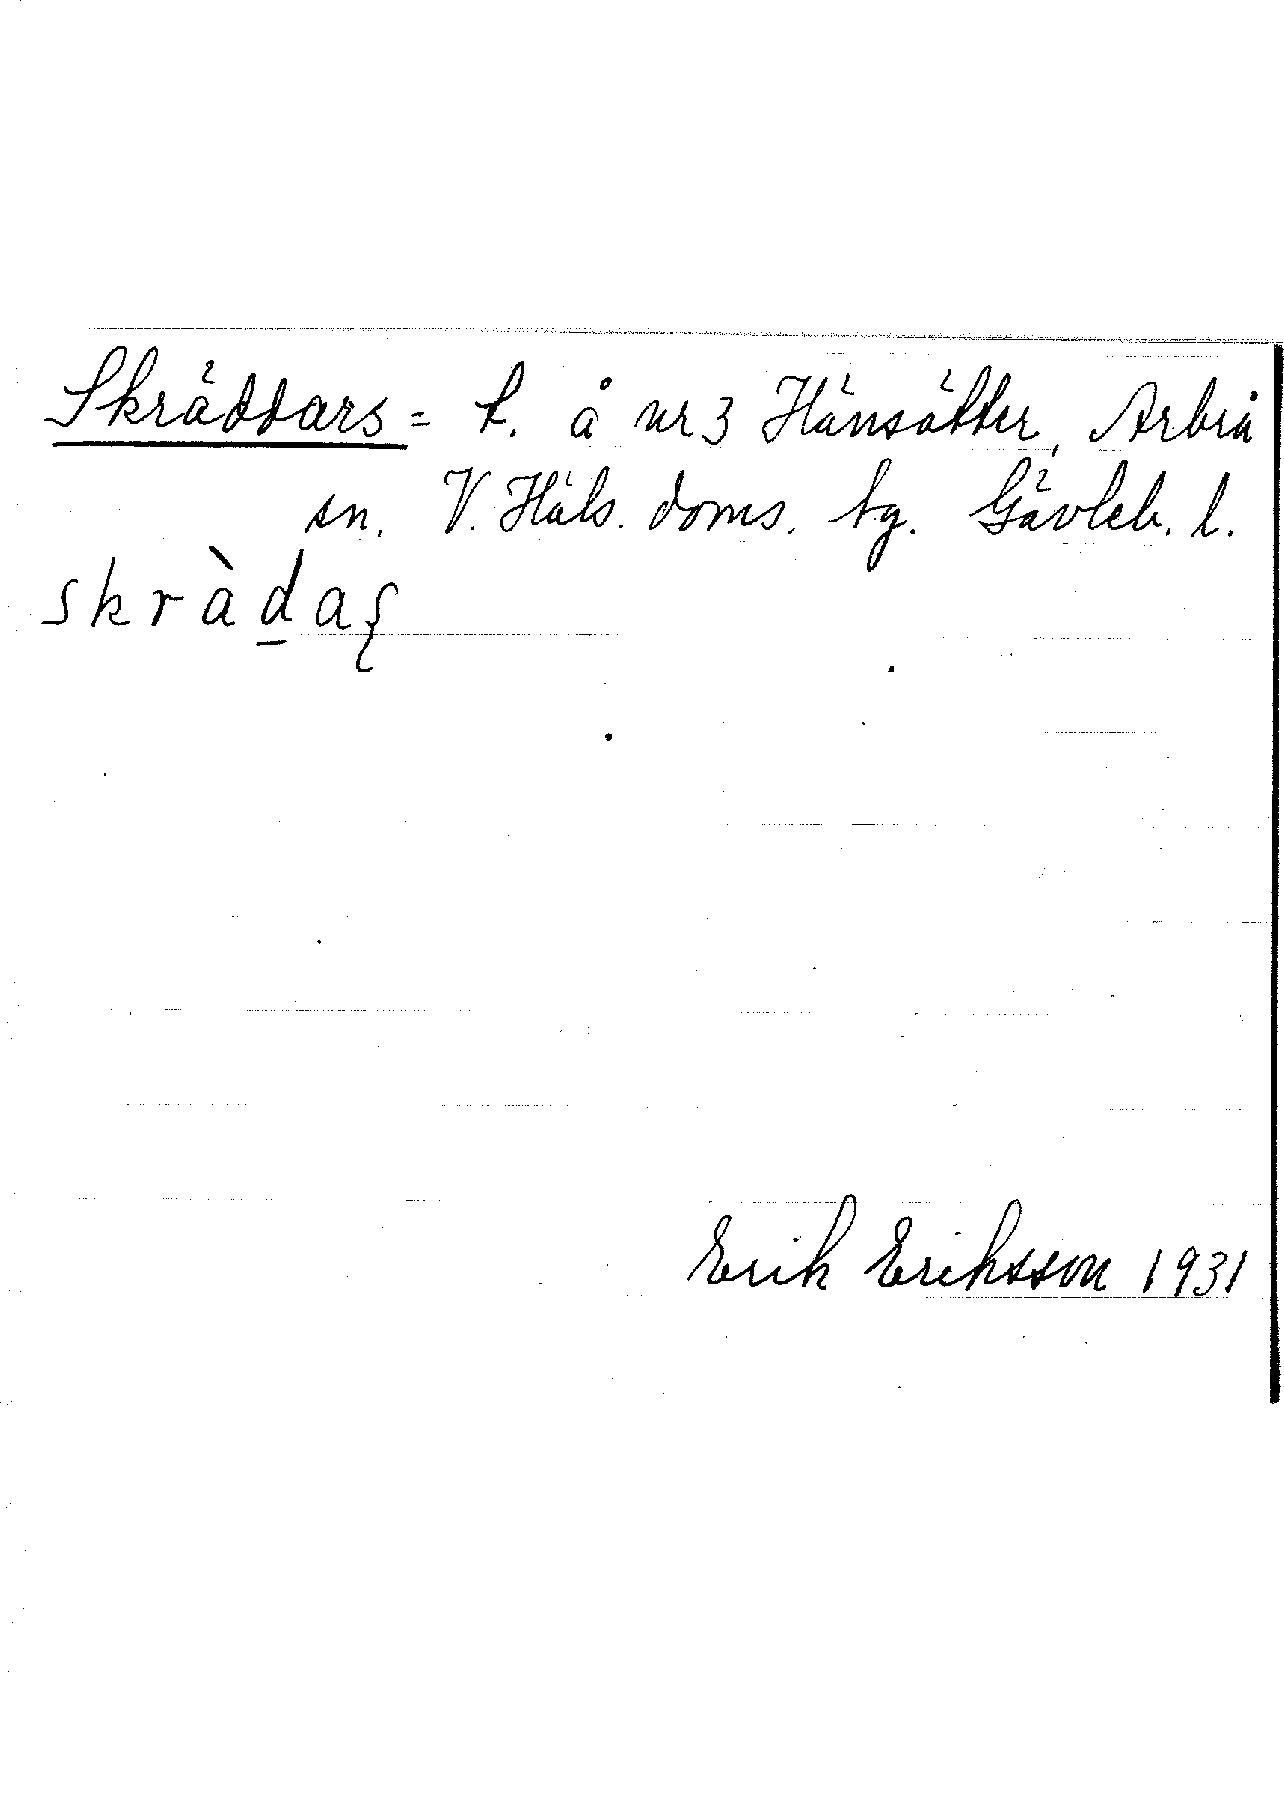 Skräddars = t. å nr 3 Hänsätter, Arbrå
sn. V. Häls. doms. tg. Gävleb. l.
skràd̲aʂ
Erik Eriksson 1931